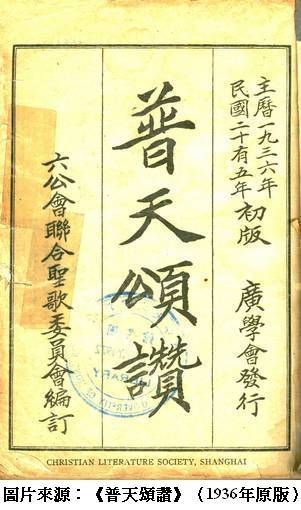 主曆一九三六年
民國二十有五年初版
廣學會發行
普天頌讚
六公會聯合聖歌委員會編訂
LIBRARY
CHRISTIAN LITERATURE SOCIETY, SHANGHAI
圖片來源：《普天頌讚》（1936年原版）